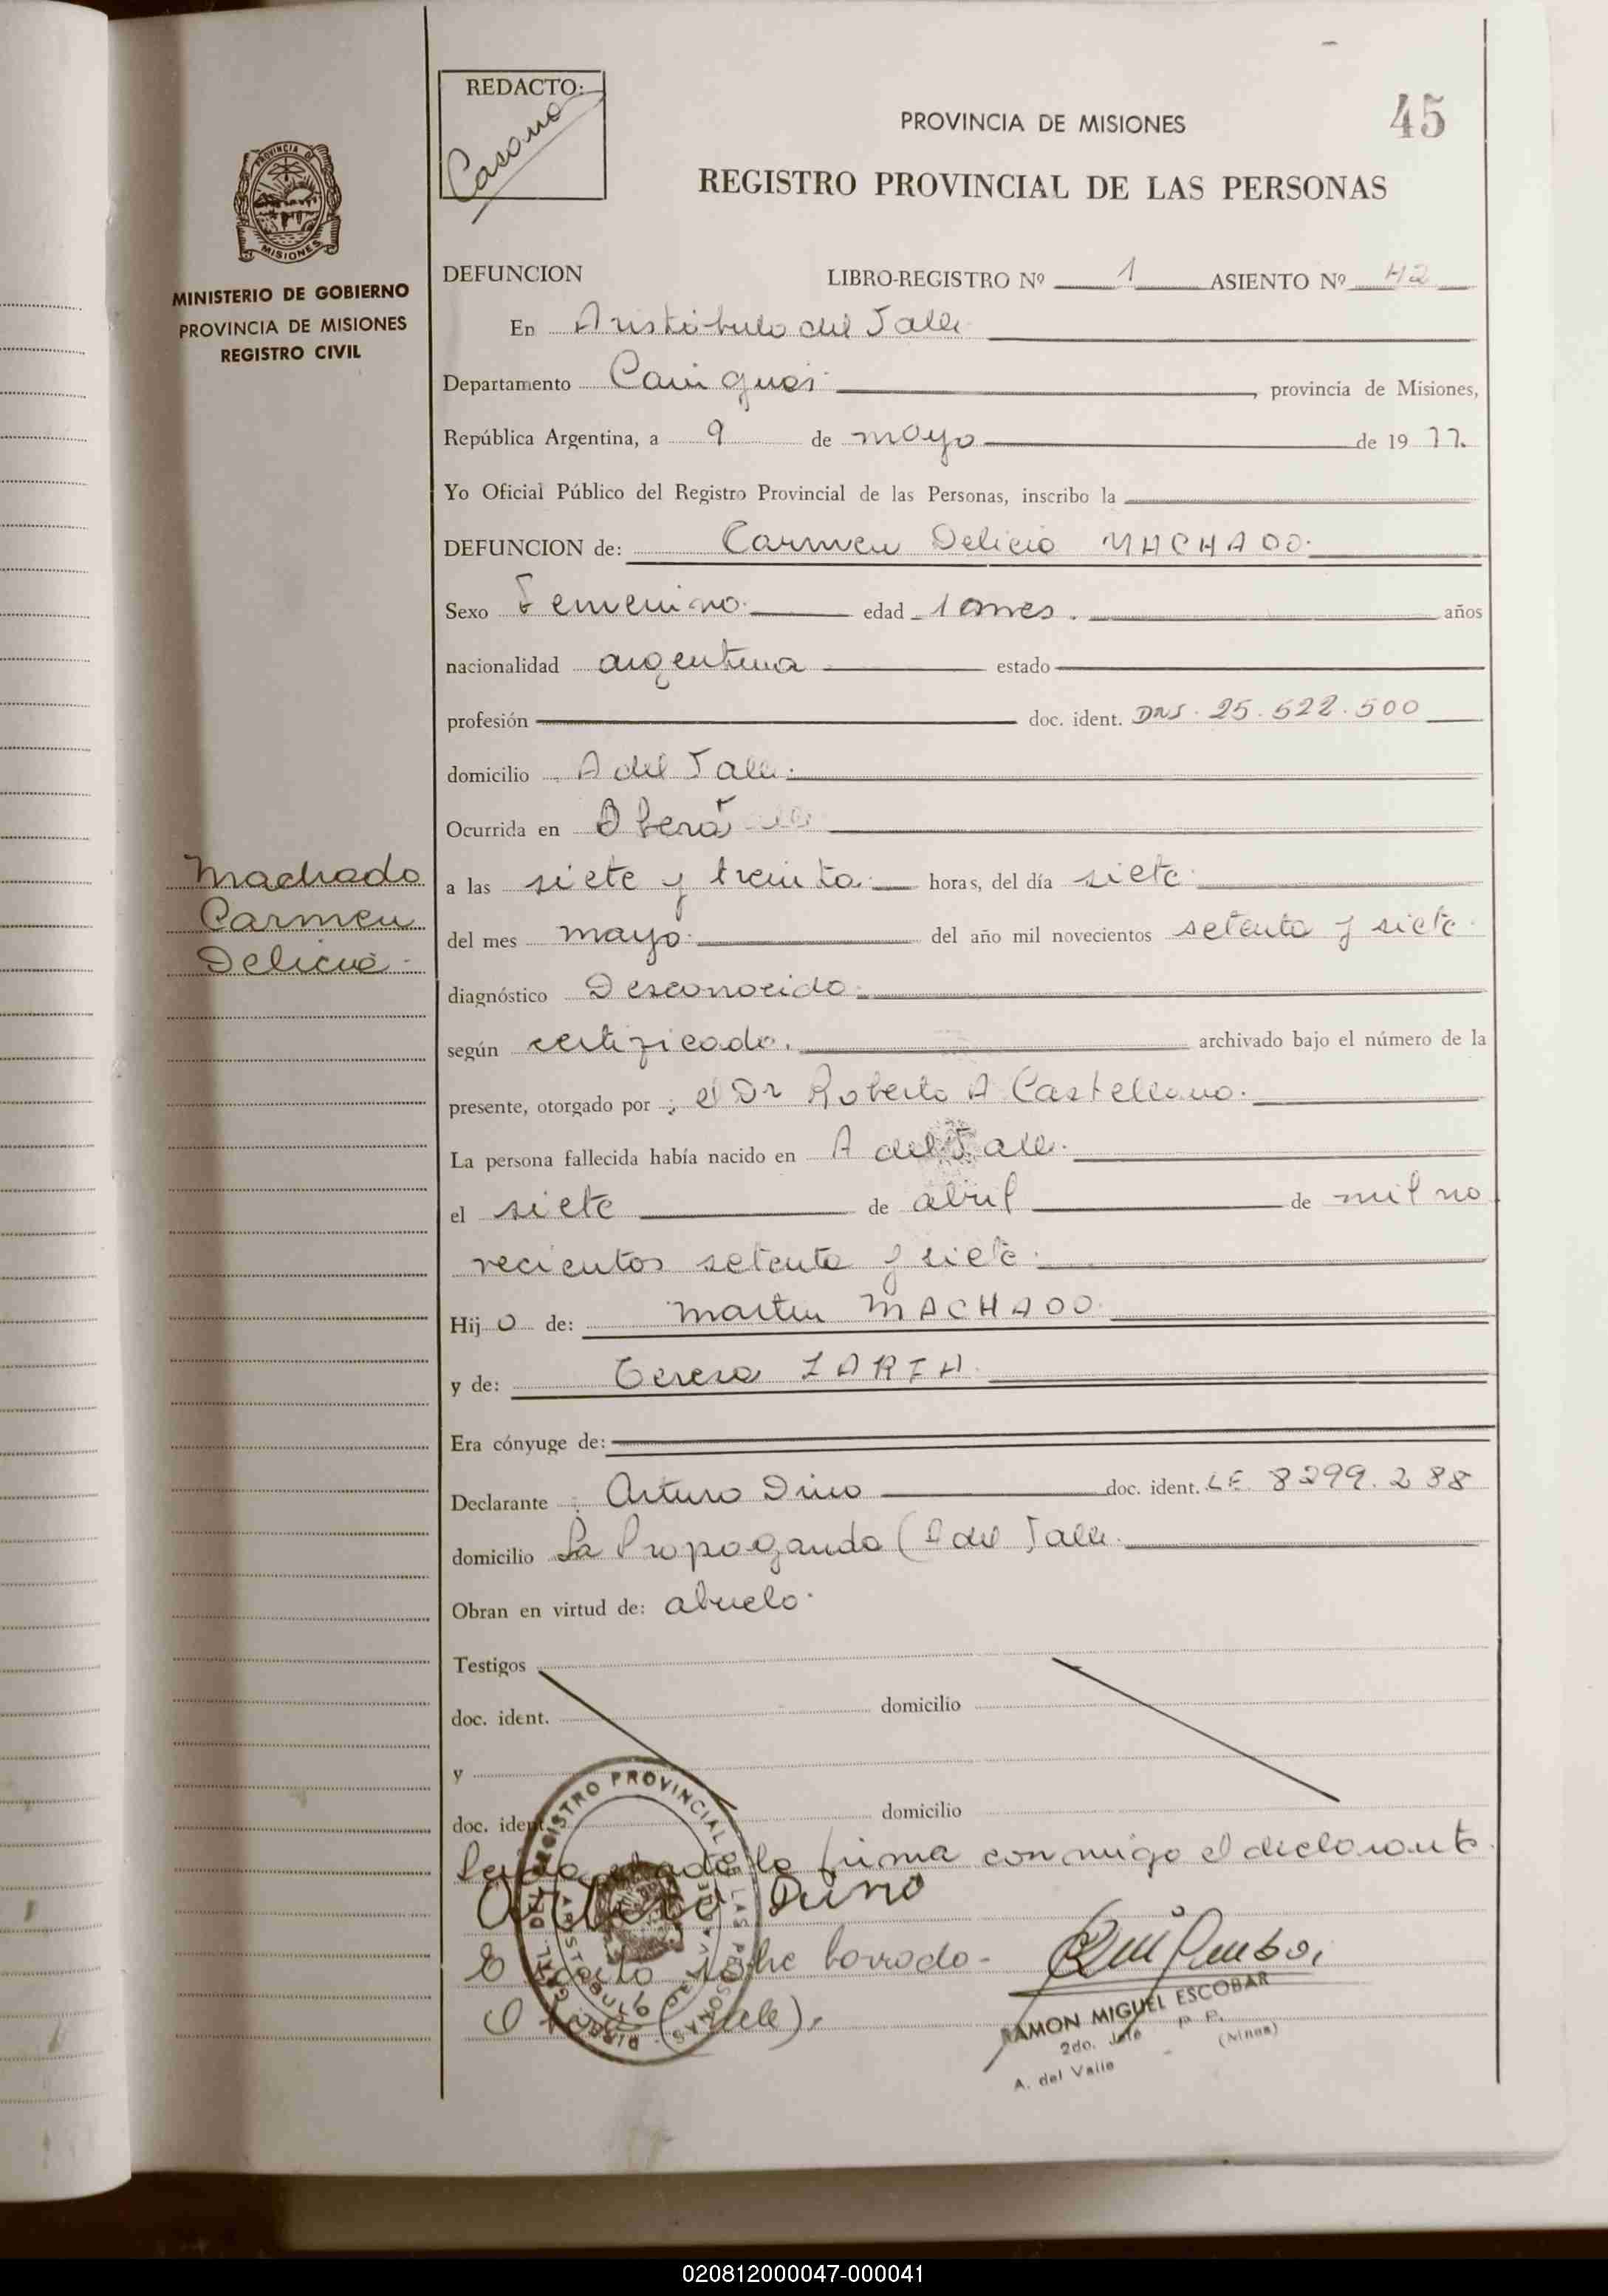 REDACTO:
Casano
PROVINCIA DE MISIONES
45
REGISTRO PROVINCIAL DE LAS PERSONAS
PROVINCIA DE
MISIONES
MINISTERIO DE GOBIERNO
PROVINCIA DE MISIONES
REGISTRO CIVIL
DEFUNCION LIBRO-REGISTRO Nº 1 ASIENTO Nº 42
En Aristóbulo del Valle
Departamento Cainguás , provincia de Misiones,
República Argentina, a 9 de mayo de 19 77.
Yo Oficial Público del Registro Provincial de las Personas, inscribo la
DEFUNCION de: Carmen Delicia MACHADO.
Sexo Femenino. edad 1 mes. años
nacionalidad argentina estado
profesión doc. ident. DNI. 25.522.500
domicilio A del Valle.
Ocurrida en Oberá
Machado
Carmen
Delicia.
a las siete y treinta. horas, del día siete.
del mes mayo. del año mil novecientos setenta y siete.
diagnóstico Desconocido.
según certificado. archivado bajo el número de la
presente, otorgado por : el Dr Roberto A Castellano.
La persona fallecida había nacido en A del Valle.
el siete de abril de mil no
vecientos setenta y siete.
Hij a de: Martin MACHADO.
y de: Teresa
Era cónyuge de:
Declarante : Arturo Dino doc. ident. LE. 8299.288
domicilio La Propaganda (A del Valle.
Obran en virtud de: abuelo.
Testigos
doc. ident. domicilio
y
doc. ident. domicilio
Leida el acta la firma conmigo el declarante.
Arturo Dino
sobre borrado-
(vale).
RAMON MIGUEL ESCOBAR
2do. Jefe
(Mnes)
A. del Valle
020812000047-000041